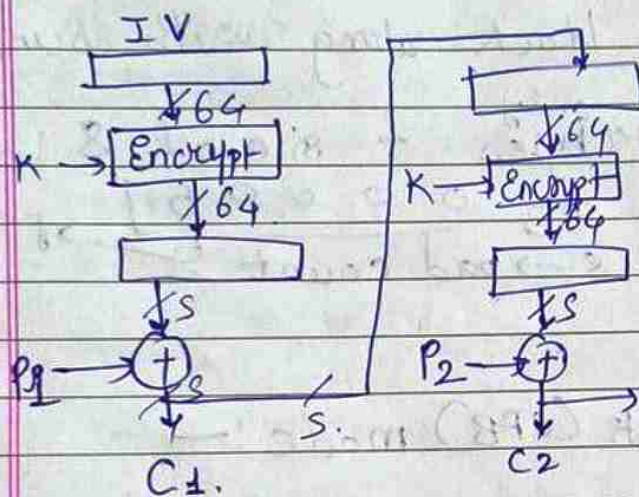 IV
64
K Encrypt
64
S
P1 +
S
S.
C1.
64
K Encrypt
64
S
P2 +
C2